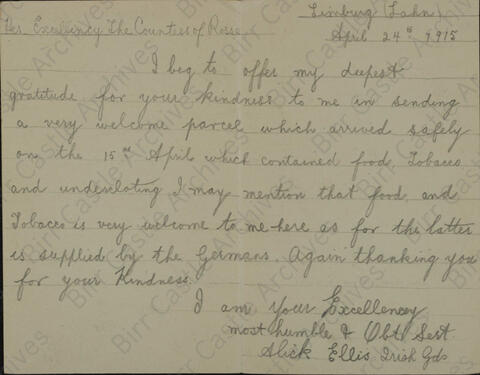 Limburg (Lahn)
Her Excellency The Counties of Rosse
April 24th 1915
I beg to offer my deepest
gratitude for your kindness to me in sending
a very welcome parcel which arrived safely
on the 15th April which contained food, Tobacco
and underclothing I may mention that food and
Tobacco is very welcome to me here as for the latter
is supplied by the Germans. Again thanking you
for your Kindness.
I am your Excellencey
most humble & Obt Sert
Alick Ellis Irish Gds
Birr Castle Archives